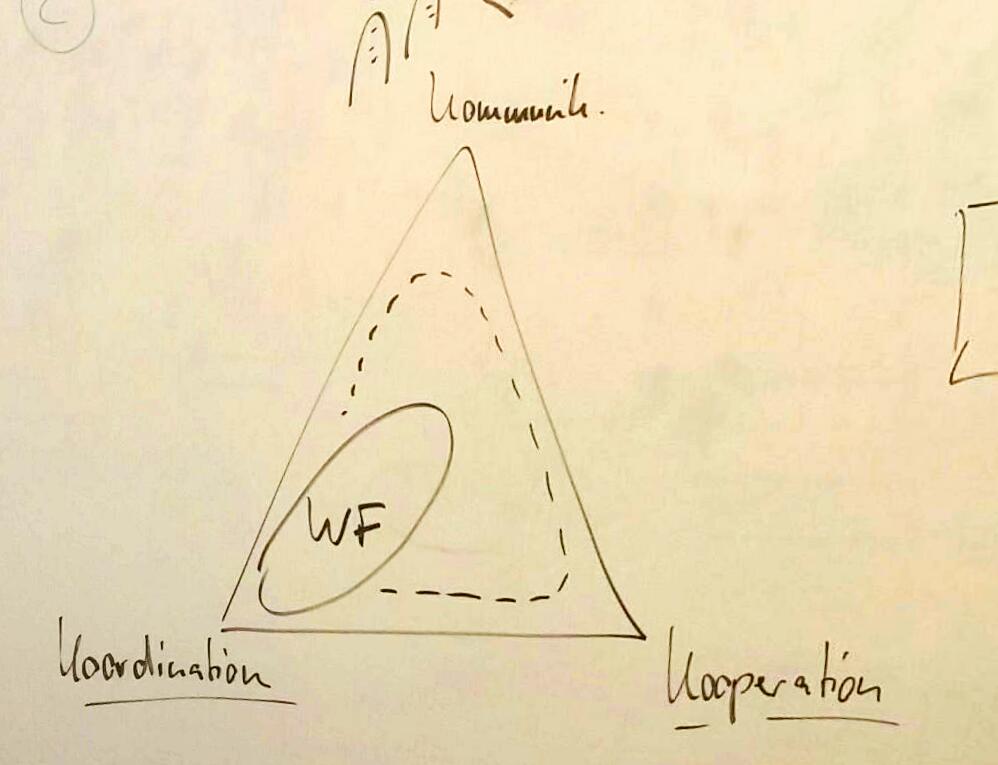 Kommunik.
WF
Koordination
Kooperation